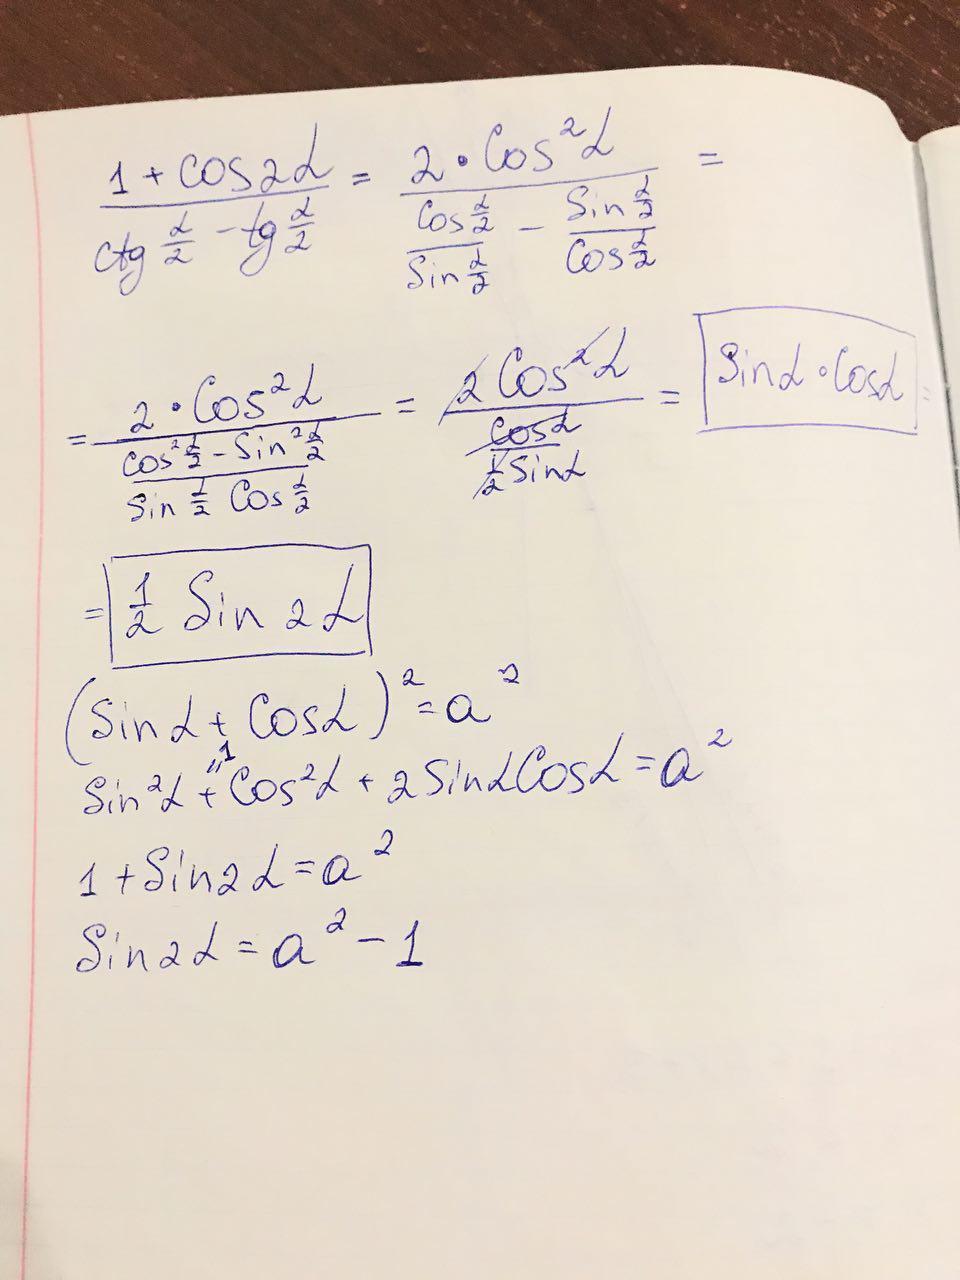 (1 + cos2α)/(ctg α/2 - tg α/2) = (2 · Cos²α)/(Cos α/2 / Sin α/2 - Sin α/2 / Cos α/2) =
= (2 · Cos²α)/((cos² α/2 - Sin² α/2)/(Sin α/2 Cos α/2)) = (2 Cos²α)/(Cosα / (1/2 Sinα)) = Sinα · Cosα =
= 1/2 Sin 2α
(Sinα + Cosα)² = a²
Sin²α + Cos²α + 2SinαCosα = a²
1 + Sin2α = a²
Sin2α = a² - 1